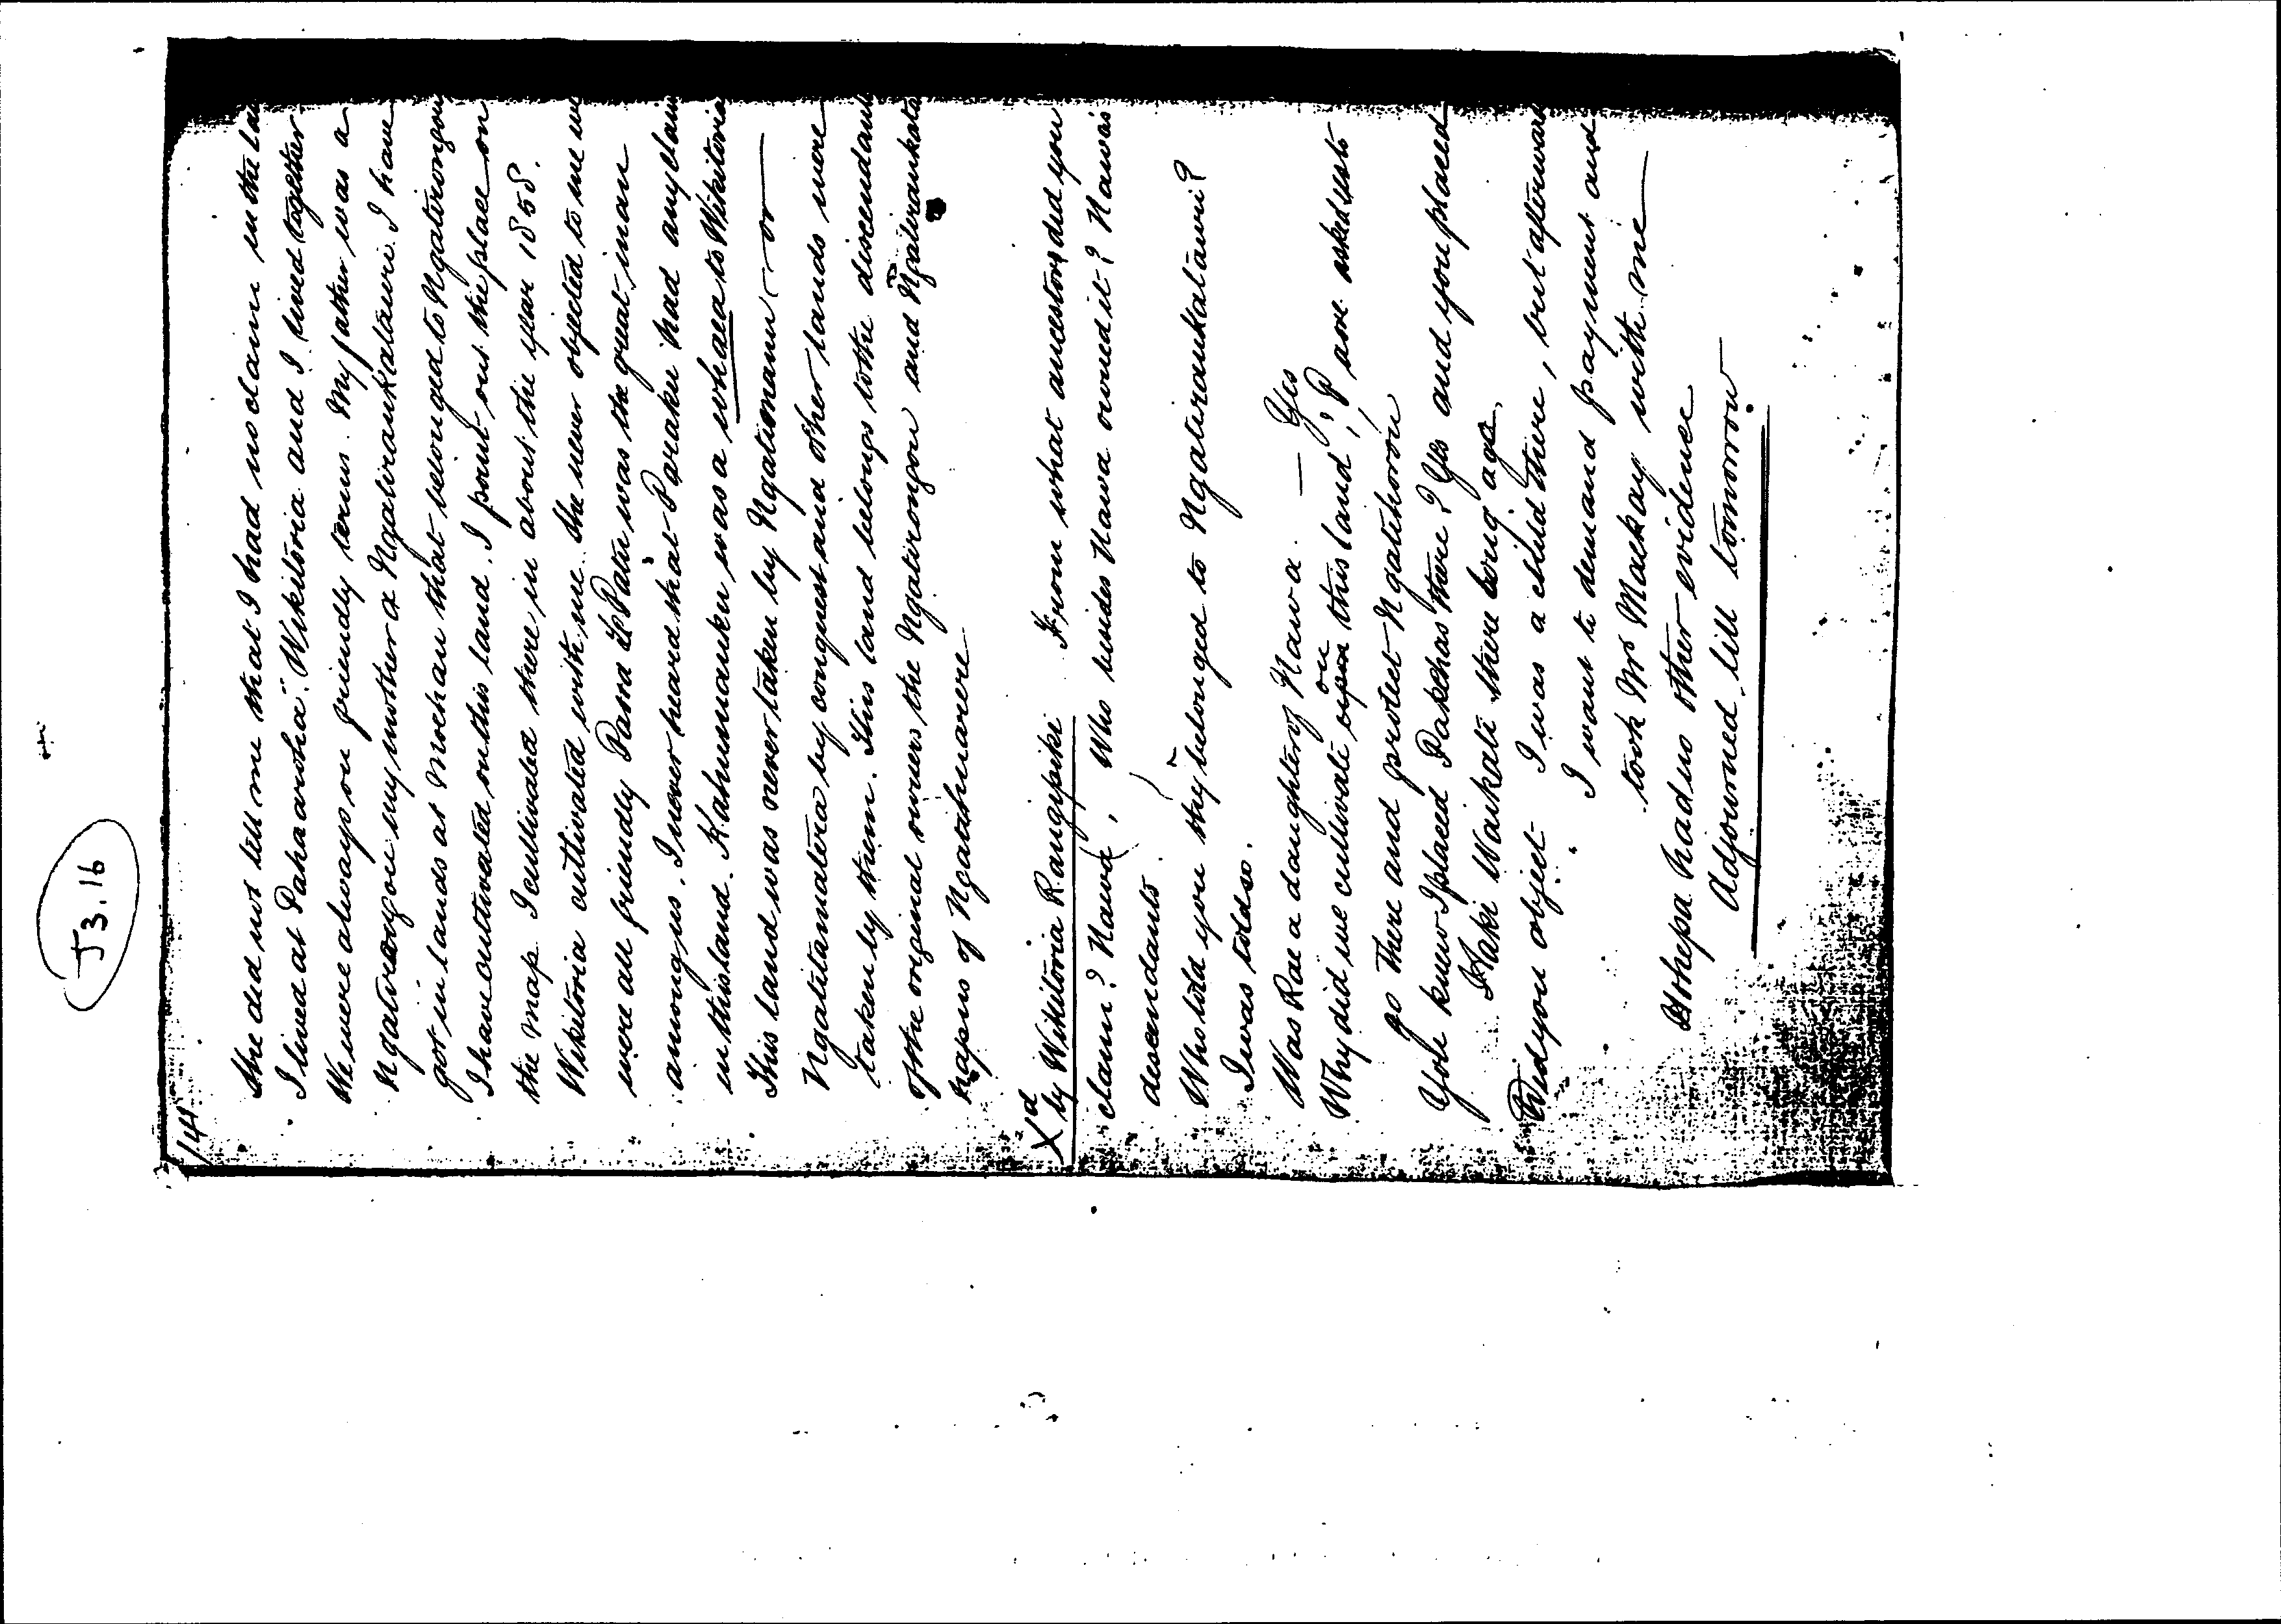 J3.16
141
She did not tell me that I had no claim in the la
I lived at Pahaarohia. Wikitoria and I lived together
We were always on friendly terms. My father was a
Ngatirongou my mother a Ngatiraukatauri. I have
got in lands at Moehau that belonged to Ngatirongou
I have cultivated on this land. I point out the place on
the map. I cultivated there in about the year 1858.
Wikitoria cultivated with me. She never objected to me we
were all friendly. Paora Te Patu was the great man
among us. I never heard that Paraku had any claim
in this land. Kahumauku was a whaea to Wikitoria
This land was never taken by Ngatimaru or
Ngatitamatera by conquest and other lands were
taken by them. This land belongs to the descendants
of the original owners the Ngatirongou and Ngatiraukata
hapus of Ngatihuarere
Xd by Wikitoria Rangipiki From what ancestors did you
claim? Hawa, Who besides Hawa owned it? Hawa's
descendants.
Who told you they belonged to Ngatiraukatauri?
I was told so.
Was Rae a daughter of Hawa. — Yes
Why did we cultivate upon on this land? P asked us to
go there and protect Ngatihoron
You know I placed Pakehas there? Yes and you placed
Haki Waikati there long ago,
Did you object I was a child there, but afterward
I want to demand payment and
took Mr Mackay with me
Hohepa had no other evidence
Adjourned till tomorrow.